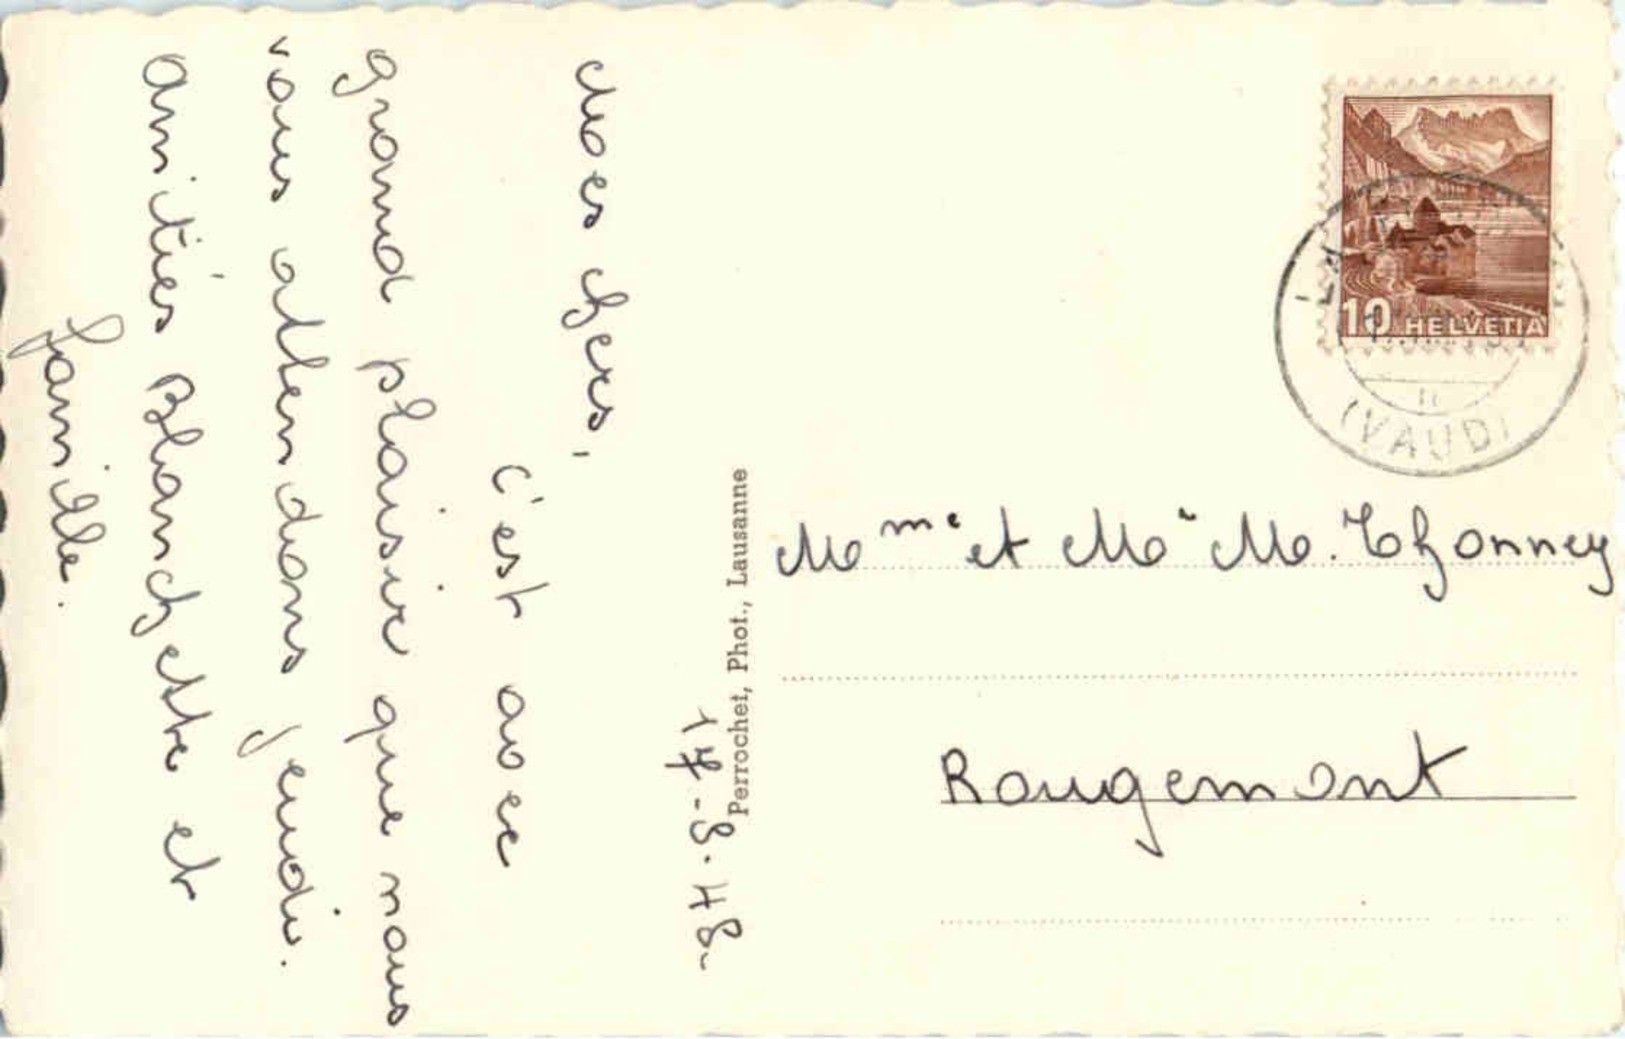 17-8.48-
Mes chers,
c'est avec
grand plaisir que nous
vous attendons jeudi.
Amitiés Blanchette et
famille.
Perrochet, Phot., Lausanne
10 HELVETIA
(VAUD)
Mme et Mr M. Thonney
Rougemont